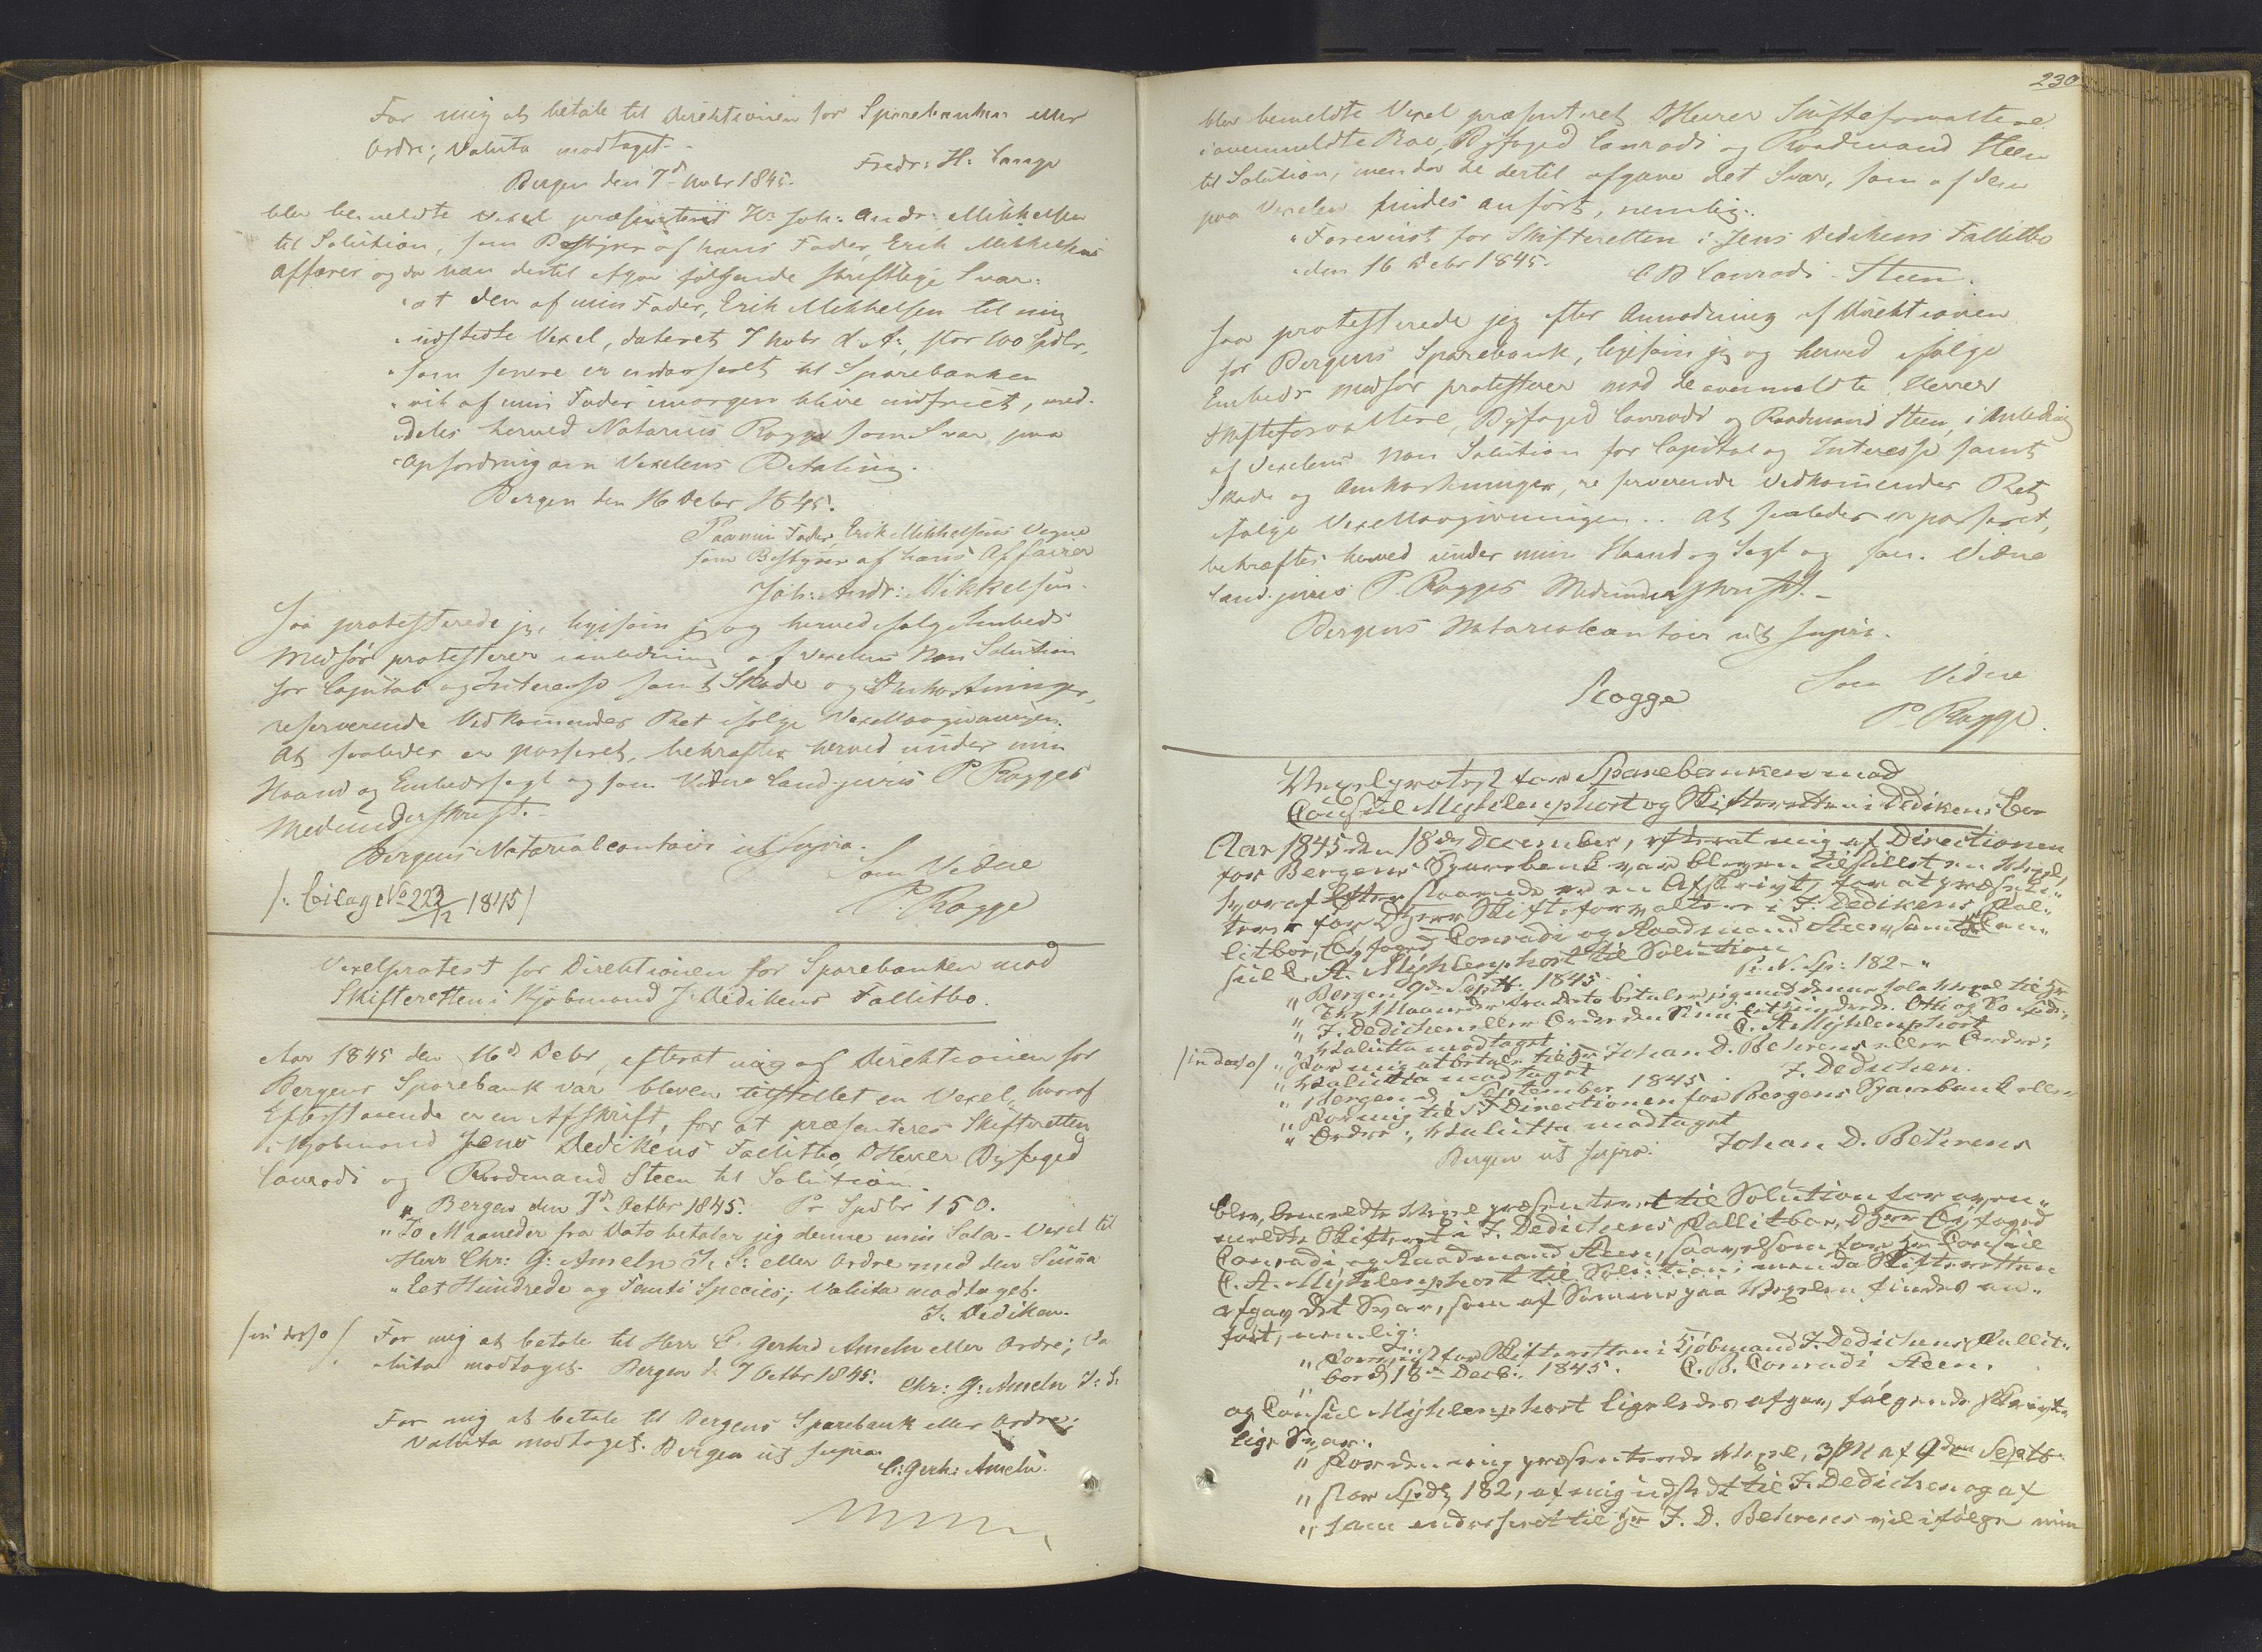 For mig at betale til Direktionen for Sparebanken eller
Ordre; Valuta modtaget.
Bergen den 7d Novbr 1845. Fredr: H: Lange
blev bemeldte Vexel præsenteret Hr Joh: Andr: Mikkelsen
til Solution, som Bestyrer af hans Fader, Erik Mikkelsens
Affærer og da han dertil afgav følgende skriftlige Svar:
"at den af min Fader, Erik Mikkelsen til mig
"udstedte Vexel, dateret 7 Novbr d. A:, stor 100 Spdlr,
"som senere er endosseret til Sparebanken
"vil af min Fader imorgen blive indfriet, med-
"deles herved Notarius Rogge som Svar paa
"Opfordring om Vexelens Betaling.
Bergen den 16 Debr 1845.
Paa min Fader, Erik Mikkelsens Vegne
som Bestyrer af hans Affairer
Joh: Andr: Mikkelsen.
Saa protesterede jeg, ligesom jeg og herved ifølge Embeds
Medfør protesterer i anledning af Vexelens Non Solution
for Capital og Interesse samt Skade og Omkostninger,
reserverende Vedkommendes Ret ifølge Vexellovgivningen.
At saaledes er passeret, bekræftes herved under min
Haand og Embedssegl og som Vidne Cand. juris P Rogges
Medunderskrift.
Bergens Notarialcontoir ut supra.
Som Vidne
P. Rogge
/: Bilag No 223/12 1845 /
Vexelprotest for Direktionen for Sparebanken mod
Skifteretten i Kjøbmand J. Dedikens Fallitbo.
Aar 1845 den 16d Debr, efterat mig af Direktionen for
Bergens Sparebank var bleven tilstillet en Vexel, hvoraf
Efterstaaende er en Afskrift, for at præsenteres Skifteretten
i Kjøbmand Jens Dedikens Fallitbo, DHerrer Byfoged
Conradi og Raadmand Steen til Solution.
"Bergen den 7d Octbr 1845. Pr Spdlr 150.
"To Maaneder fra Dato betaler jeg denne min Sola-Vexel til
"Herr Chr: G: Ameln J: S: eller Ordre med den Summa
"Eet Hundrede og Femti Species; Valuta modtaget.
J. Dediken.
/in dosso/ For mig at betale til Herr C. Gerhrd Ameln eller Ordre; Va-
luta modtaget. Bergen d. 7 Octbr 1845. Chr: G: Ameln J: S:
For mig at betale til Bergens Sparebank eller Ordre;
Valuta modtaget. Bergen ut supra
C: Gerh: Ameln.
230
blev bemeldte Vexel præsenteret DHerrer Skifteforvaltere
i ovenmeldte Boe, Byfoged Conradi og Raadmand Steen
til Solution, men da de dertil afgave det Svar, som af dem
paa Vexelen findes anført, nemlig:
"Foreviist for Skifteretten i Jens Dedikens Fallitbo
"den 16 Debr 1845. C B Conradi - Steen.
saa protesterede jeg efter Anmodning af Direktionen
for Bergens Sparebank, ligesom jeg og herved ifølge
Embeds Medfør protesterer mod de ovenmeldte Herrer
Skifteforvaltere, Byfoged Conradi og Raadmand Steen, i Anledning
af Vexelens Non Solution for Capital og Interesse samt
Skade og Omkostninger, reserverende Vedkommendes Ret
ifølge Vexellovgivningen. At saaledes er passeret,
bekræftes herved under min Haand og Segl og som Vidne
Cand. juris P. Rogges Medunderskrift.
Bergens Notarialcontoir ut supra.
Rogge Som Vidne
P. Rogge.
Vexelprotest for Sparebanken mod
Consul Myhlenphort og Skifteretten i Dedikens Bo
Aar 1845 den 18de December, efterat mig af Directionen
for Bergens Sparebank var bleven tilstillet en Vexel,
hvoraf Efterstaaende er en Afskrivt, for at præsen-
teres for DHerr Skifteforvaltere i J. Dedikens Fal-
litboe, Byfoged Conradi og Raadmand Steen, samt Con-
sul C. A. Myhlenphort til Solution
"Bergen 9de Septb: 1845. Pr. N. Sp: 182-"
"Tre Maaneder fra Dato betaler jeg mod denne sola Vexel til Hr
"J. Dedichen eller Ordre den Sum Eet Hundrede Otti og To Spd.
"Valutta modtaget C. A. Myhlenphort
/in dosso/ "For mig at betale til Hr Johan D. Behrens eller Ordre;
"Valutta modtaget J. Dedichen.
"Bergen d. September 1845
"For mig til Directionen for Bergens Sparebank eller
"Ordre; Valutta modtaget
Bergen ut supra. Johan D. Behrens
blev bemeldte Vexel præsenteret til Solution for oven-
meldte Skifteret i J. Dedichens Fallitboe, DHerr Byfoged
Conradi og Raadmand Steen, saavelsom for Hr Consul
C. A. Myhlenphort til Solution; men da Skifteretten
afgav det Svar, som af Samme paa Vexelen findes an-
ført, nemlig:
"Foreviist for Skifteretten i Kjøbmand J. Dedichens Fallit-
bo d 18de Decb. 1845. C. B. Conradi Steen.
og Consul Myhlenphort ligeledes afgav følgende skrivt-
lige Svar:
"For den mig præsenterede Vexel, 3/M af 9den Septb
"stor Spdr 182, af mig udstedt til J. Dedichen og af
"ham endosseret til Hr J. D. Behrens vil ifølge min